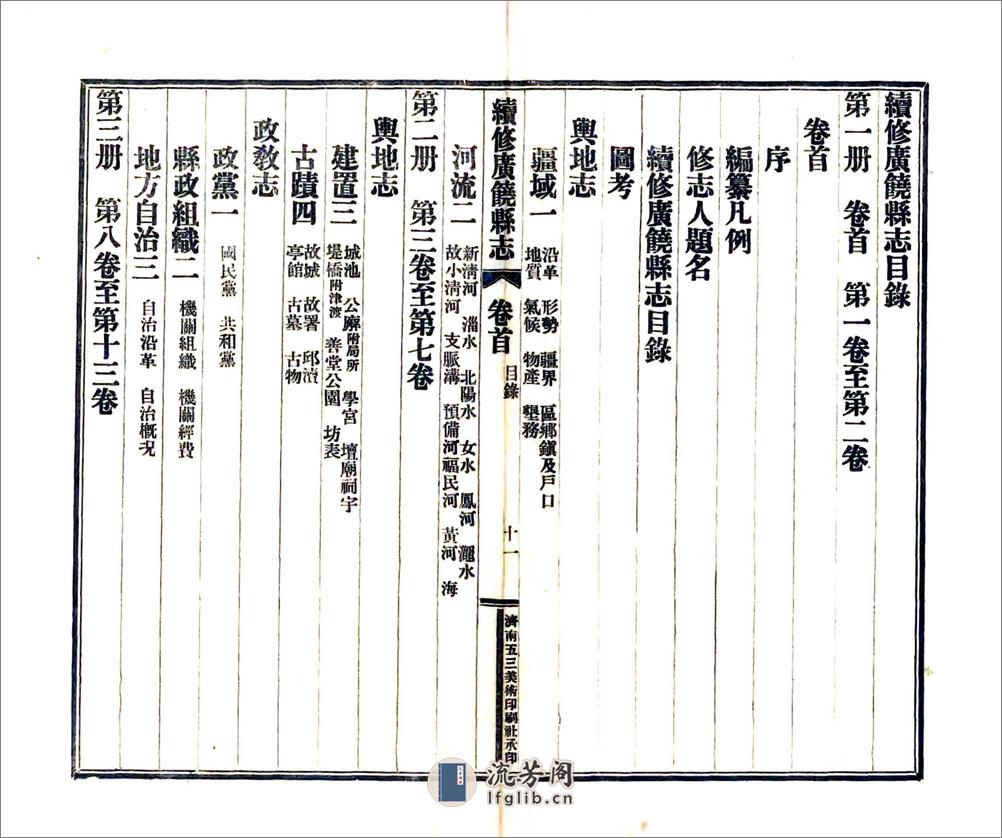 續修廣饒縣志目錄
第一册　卷首　第一卷至第二卷
卷首
序
編纂凡例
修志人題名
續修廣饒縣志目錄
圖考
輿地志
疆域一　沿革　形勢　疆界　區鄉鎮及戶口
地質　氣候　物產　墾務
續修廣饒縣志　卷首　目錄　十一　濟南五三美術印刷社承印
河流二　新清河　淄水　北陽水　女水　鳳河　澠水
故小清河　支脈溝　預備河福民河　黃河　海
第二册　第三卷至第七卷
輿地志
建置三　城池　公廨附局所　學宮　壇廟祠宇
堤橋附津渡　善堂公園　坊表
古蹟四　故城　故署　邱瀆
亭館　古墓　古物
政教志
政黨一　國民黨　共和黨
縣政組織二　機關組織　機關經費
地方自治三　自治沿革　自治概況
第三册　第八卷至第十三卷
流芳阁
lfglib.cn